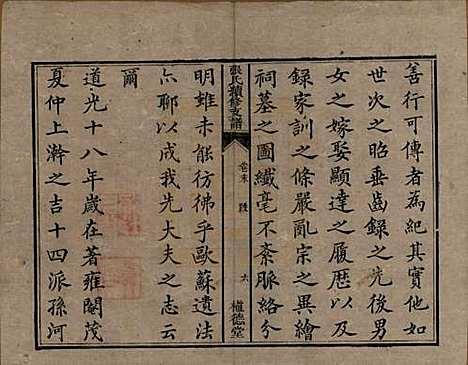 善行可傳者為紀其實他如
世次之昭垂齒錄之先後男
女之嫁娶顯達之履歴以及
錄家訓之條嚴亂宗之異繪
祠墓之圖纖毫不紊脈絡分
張氏續修支譜
卷末
跋
六
植德堂
明雖未能彷彿乎歐蘇遺法
亦聊以成我先大夫之志云
爾
道光十八年歲在著雍閹茂
夏仲上澣之吉十四派孫河